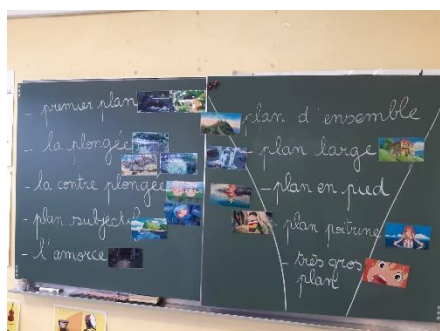 - premier plan
- la plongée
- la contre plongée
- plan subjectif
- l'amorce
plan d'ensemble
- plan large
- plan en pied
plan poitrine
- très gros
plan